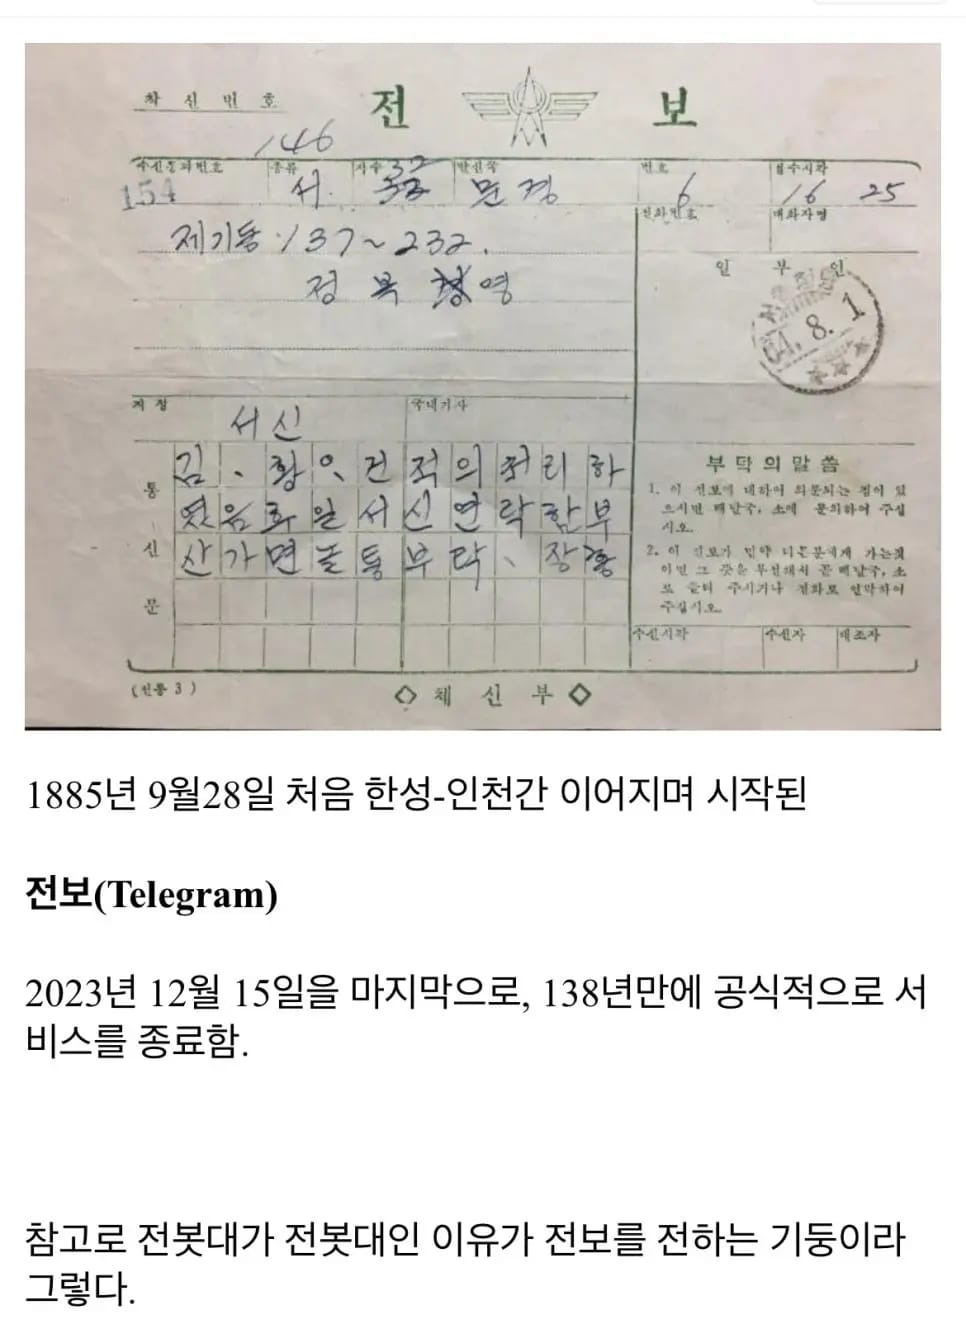 착신번호
전 보
146
수신통과번호 종류 자수 발신국 번호 접수시각
154 서 32 문경 6 16 25
전화번호 대화자명
제기동 137~232.
정복 영
일 부 인
64. 8. 1
지정 국내기사
서신
통신문
김、황、건 적의 처리하
였음 화일 서신연락함 부
산가면 곧통부탁、장
부탁의 말씀
1. 이 전보에 대하여 의문되는 점이 있
으시면 배달국, 소에 문의하여 주십
시오.
2. 이 전보가 만약 다른분에게 가는것
이면 그 것을 부전해서 곧 배달국, 소
로 돌려 주시거나 전화로 연락하여
주십시오.
수신시각 수신자 대조자
(전통 3)
◇ 체 신 부 ◇
1885년 9월28일 처음 한성-인천간 이어지며 시작된
전보(Telegram)
2023년 12월 15일을 마지막으로, 138년만에 공식적으로 서
비스를 종료함.
참고로 전봇대가 전봇대인 이유가 전보를 전하는 기둥이라
그렇다.